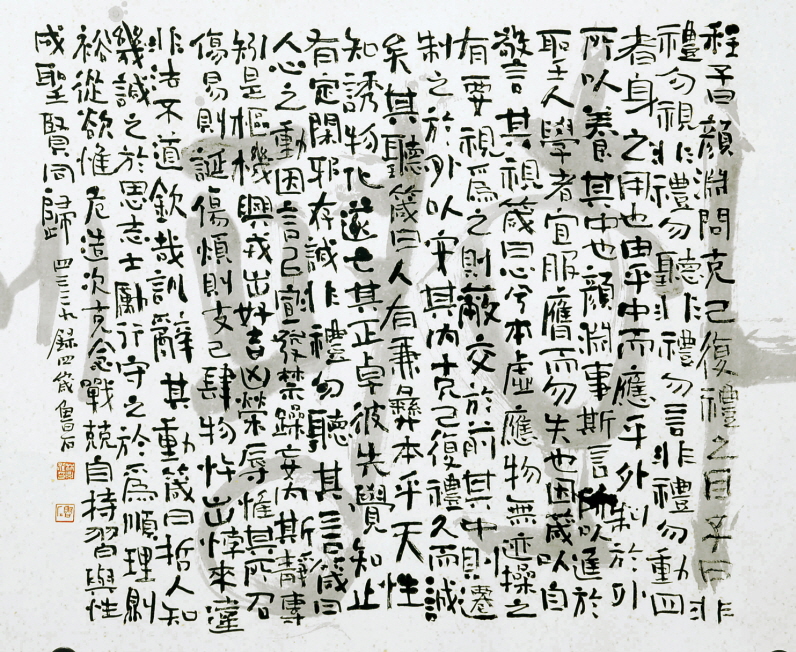 程子曰顏淵問克己復禮之目子曰非
禮勿視非禮勿聽非禮勿言非禮勿動四
者身之用也由乎中而應乎外制於外
所以養其中也顏淵事斯言所以進於
聖人學者宜服膺而勿失也因箴以自
警其視箴曰心兮本虛應物無迹操之
有要視為之則蔽交於前其中則遷
制之於外以安其內克己復禮久而誠
矣其聽箴曰人有秉彝本乎天性
知誘物化遂亡其正卓彼先覺知止
有定閑邪存誠非禮勿聽其言箴曰
人心之動因言以宣發禁躁妄內斯靜專
矧是樞機興戎出好吉凶榮辱惟其所召
傷易則誕傷煩則支己肆物忤出悖來違
非法不道欽哉訓辭其動箴曰哲人知
幾誠之於思志士勵行守之於為順理則
裕從欲惟危造次克念戰兢自持習與性
成聖賢同歸 四三三九錄四箴 魯石